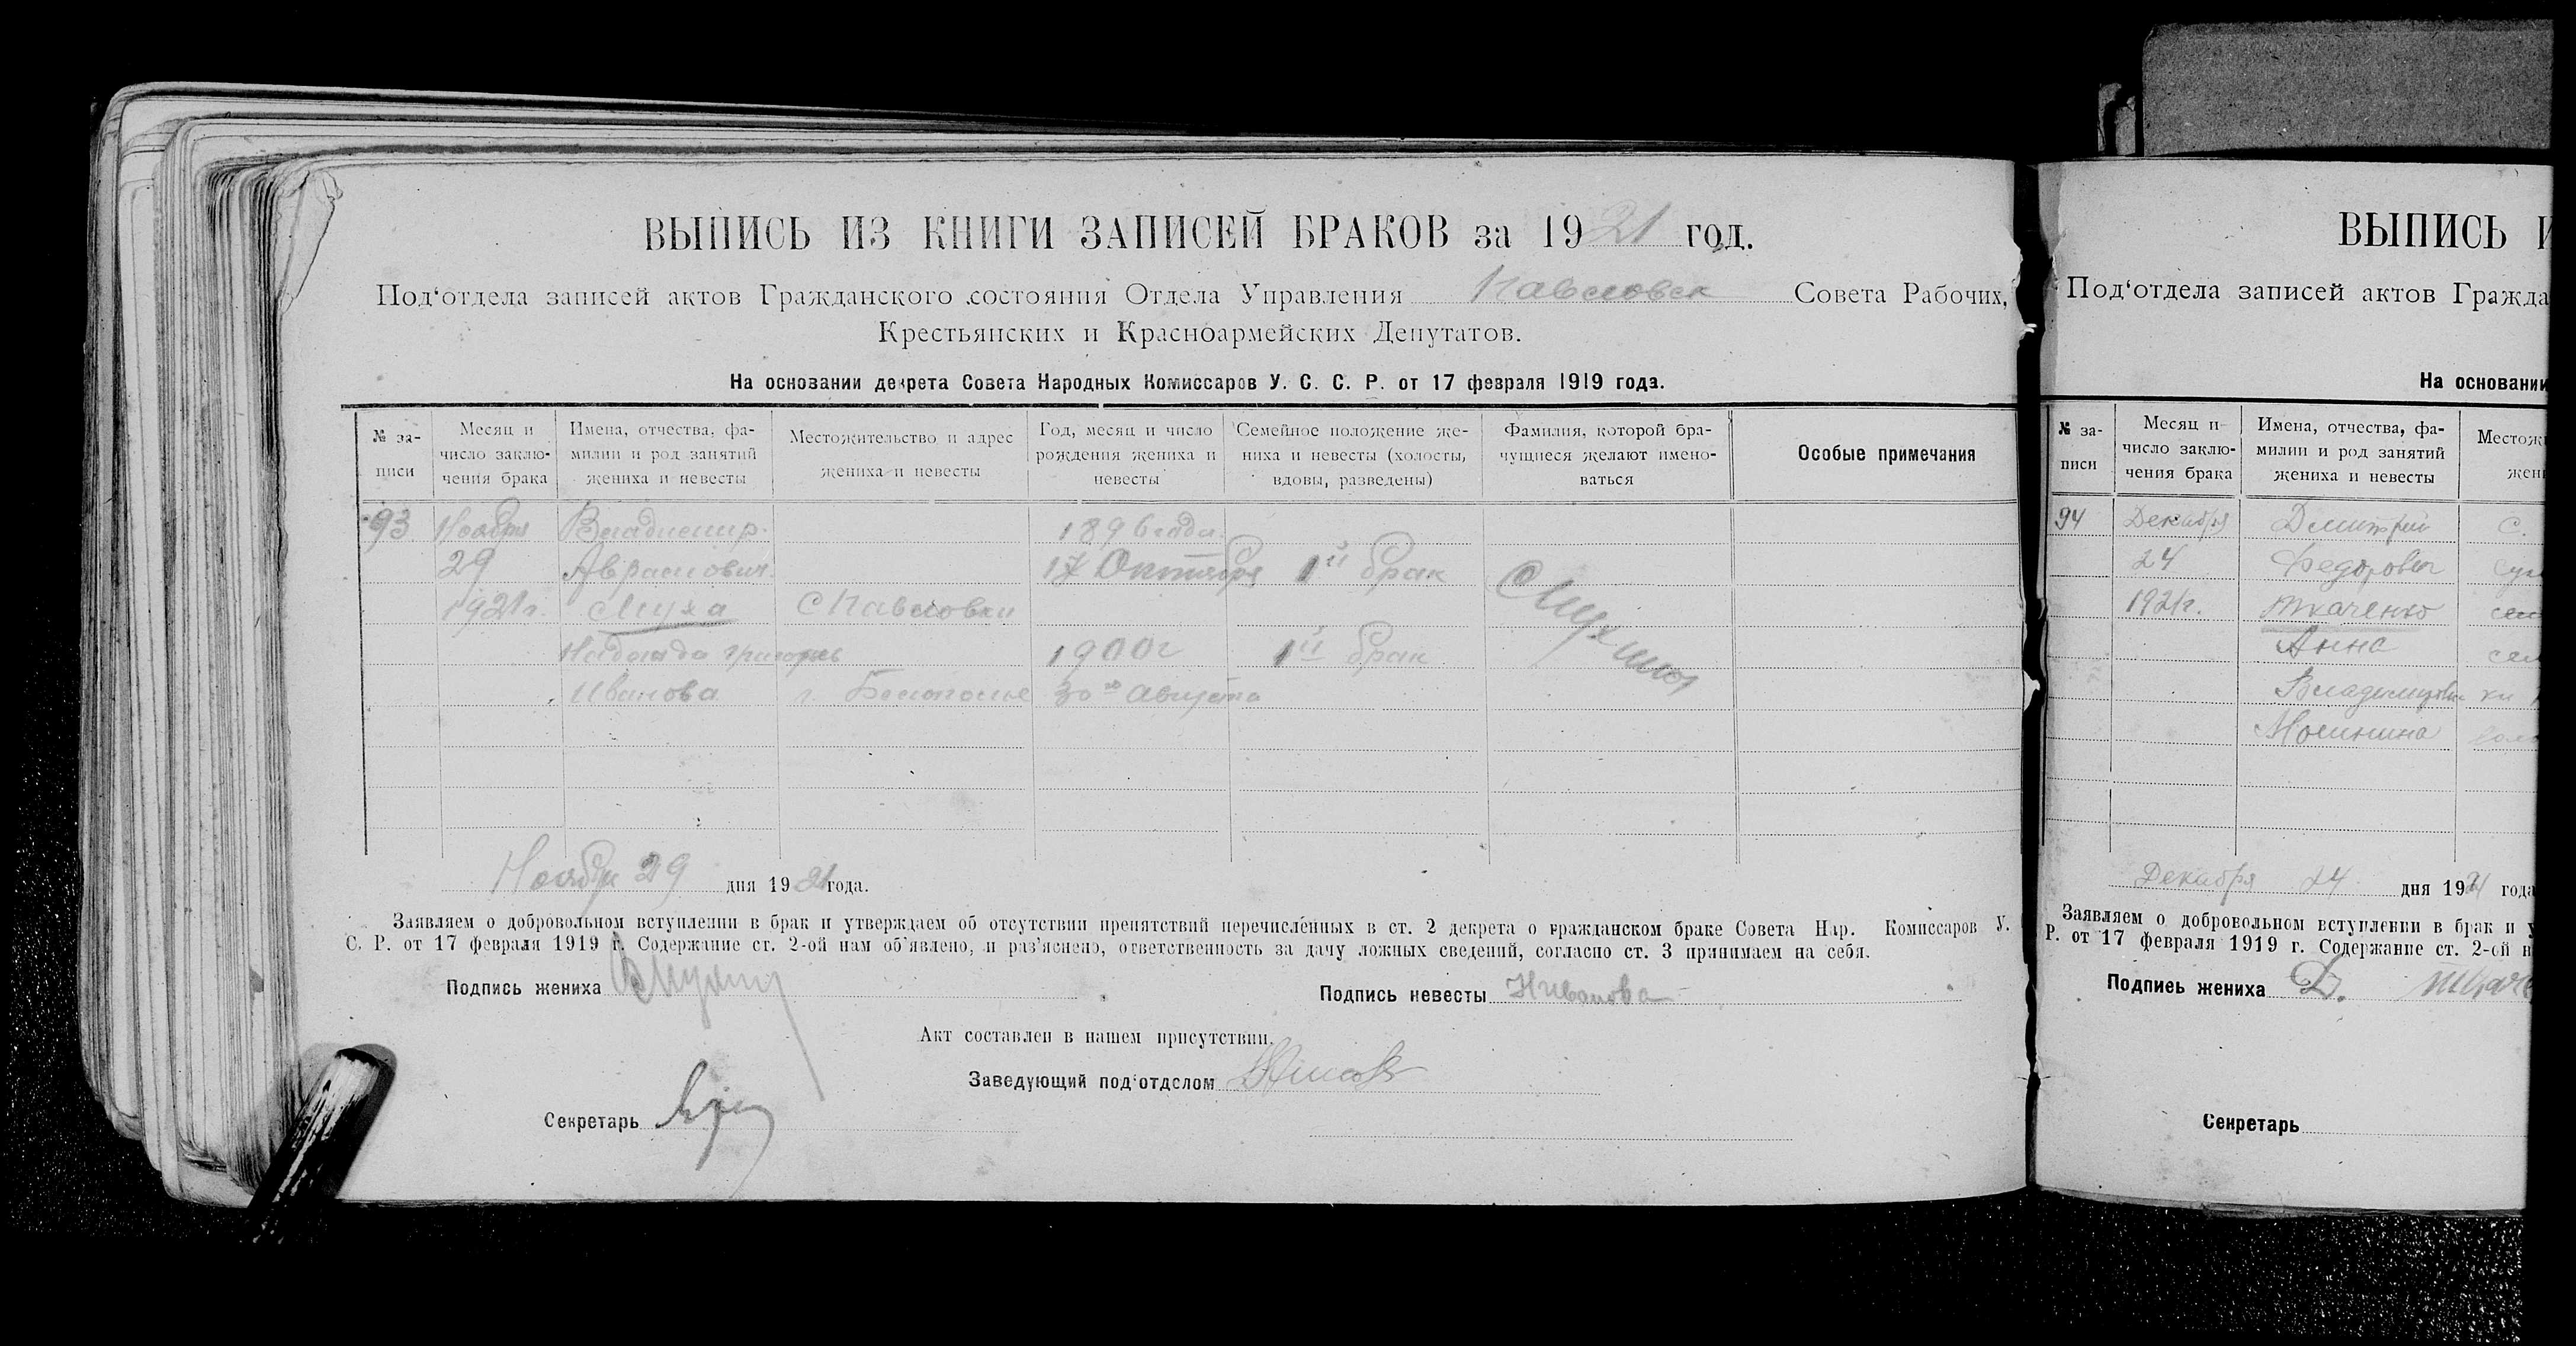 ВЫПИСЬ ИЗ КНИГИ ЗАПИСЕЙ БРАКОВ за 1921 год.
Под‘отдела записей актов Гражданского состояния Отдела Управления Павловск Совета Рабочих,
Крестьянских и Красноармейских Депутатов.
На основании декрета Совета Народных Комиссаров У. С. С. Р. от 17 февраля 1919 года.
№ за-
писи
Месяц и
число заклю-
чения брака
Имена, отчества, фа-
милии и род занятий
жениха и невесты
Местожительство и адрес
жениха и невесты
Год, месяц и число
рождения жениха и
невесты
Семейное положение же-
ниха и невесты (холосты,
вдовы, разведены)
Фамилия, которой бра-
чущиеся желают имено-
ваться
Особые примечания
93 Ноября Владимир 1896 года
29 Аврамович 17 Октября 1й брак
1921 г. Муха с Павловки
Надежда Григорьев 1900 г 1й брак
Иванова г. Белополье 30го Августа
Ноября 29 дня 1921 года.
Заявляем о добровольном вступлении в брак и утверждаем об отсутствии препятствий перечисленных в ст. 2 декрета о гражданском браке Совета Нар. Комиссаров У.
С. Р. от 17 февраля 1919 г. Содержание ст. 2-ой нам об‘явлено, и раз‘яснено, ответственность за дачу ложных сведений, согласно ст. 3 принимаем на себя.
Подпись жениха
Подпись невесты Н Иванова
Акт составлен в нашем присутствии.
Заведующий под‘отделом
Секретарь
ВЫПИСЬ И
Под‘отдела записей актов Гражда
На основании
№ за-
писи
Месяц и
число заклю-
чения брака
Имена, отчества, фа-
милии и род занятий
жениха и невесты
Местож
жен
94 Декабря Дмитрий С.
24 Федорович
1921 г. Ткаченко
Анна
Владимировн
Декабря 24 дня 1921 года
Заявляем о добровольном вступлении в брак и у
Р. от 17 февраля 1919 г. Содержание ст. 2-ой н
Подпись жениха Д. Ткаче
Секретарь